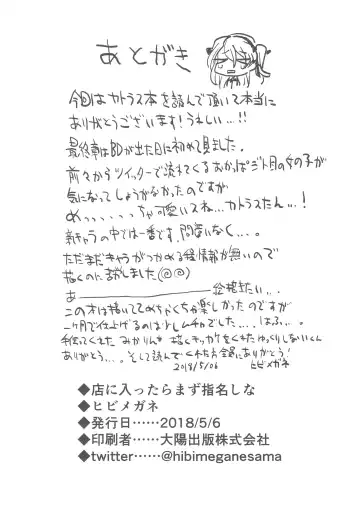 あとがき
今回はカトラス本を読んで頂いて本当に
ありがとうございます!うれしい…!!
最終章はBDが出た日に初めて見ました。
前々からツイッターで流れてくるおかっぱジト目の女の子が
気になってしょうがなかったのですが
めっ、、、、、、ちゃ可愛いすね…カトラスたん…!
新キャラの中では一番です。間違いなく…。
ただまだキャラがつかめる程情報が無いので
描くのに苦戦しました(@@)
あ
この本は描いててめちゃくちゃ楽しかったのですが
一ヶ月で仕上げるのは少しムチャでした…。はふ…。
手伝ってくれたみかりん* 描くキッカケをくれたゆっくりしないくん
ありがとう…。そして読んでくれた方全員にありがとう!
2018/5/06 ヒビメガネ
◆店に入ったらまず指名しな
◆ヒビメガネ
◆発行日……2018/5/6
◆印刷者……大陽出版株式会社
◆twitter……@hibimeganesama